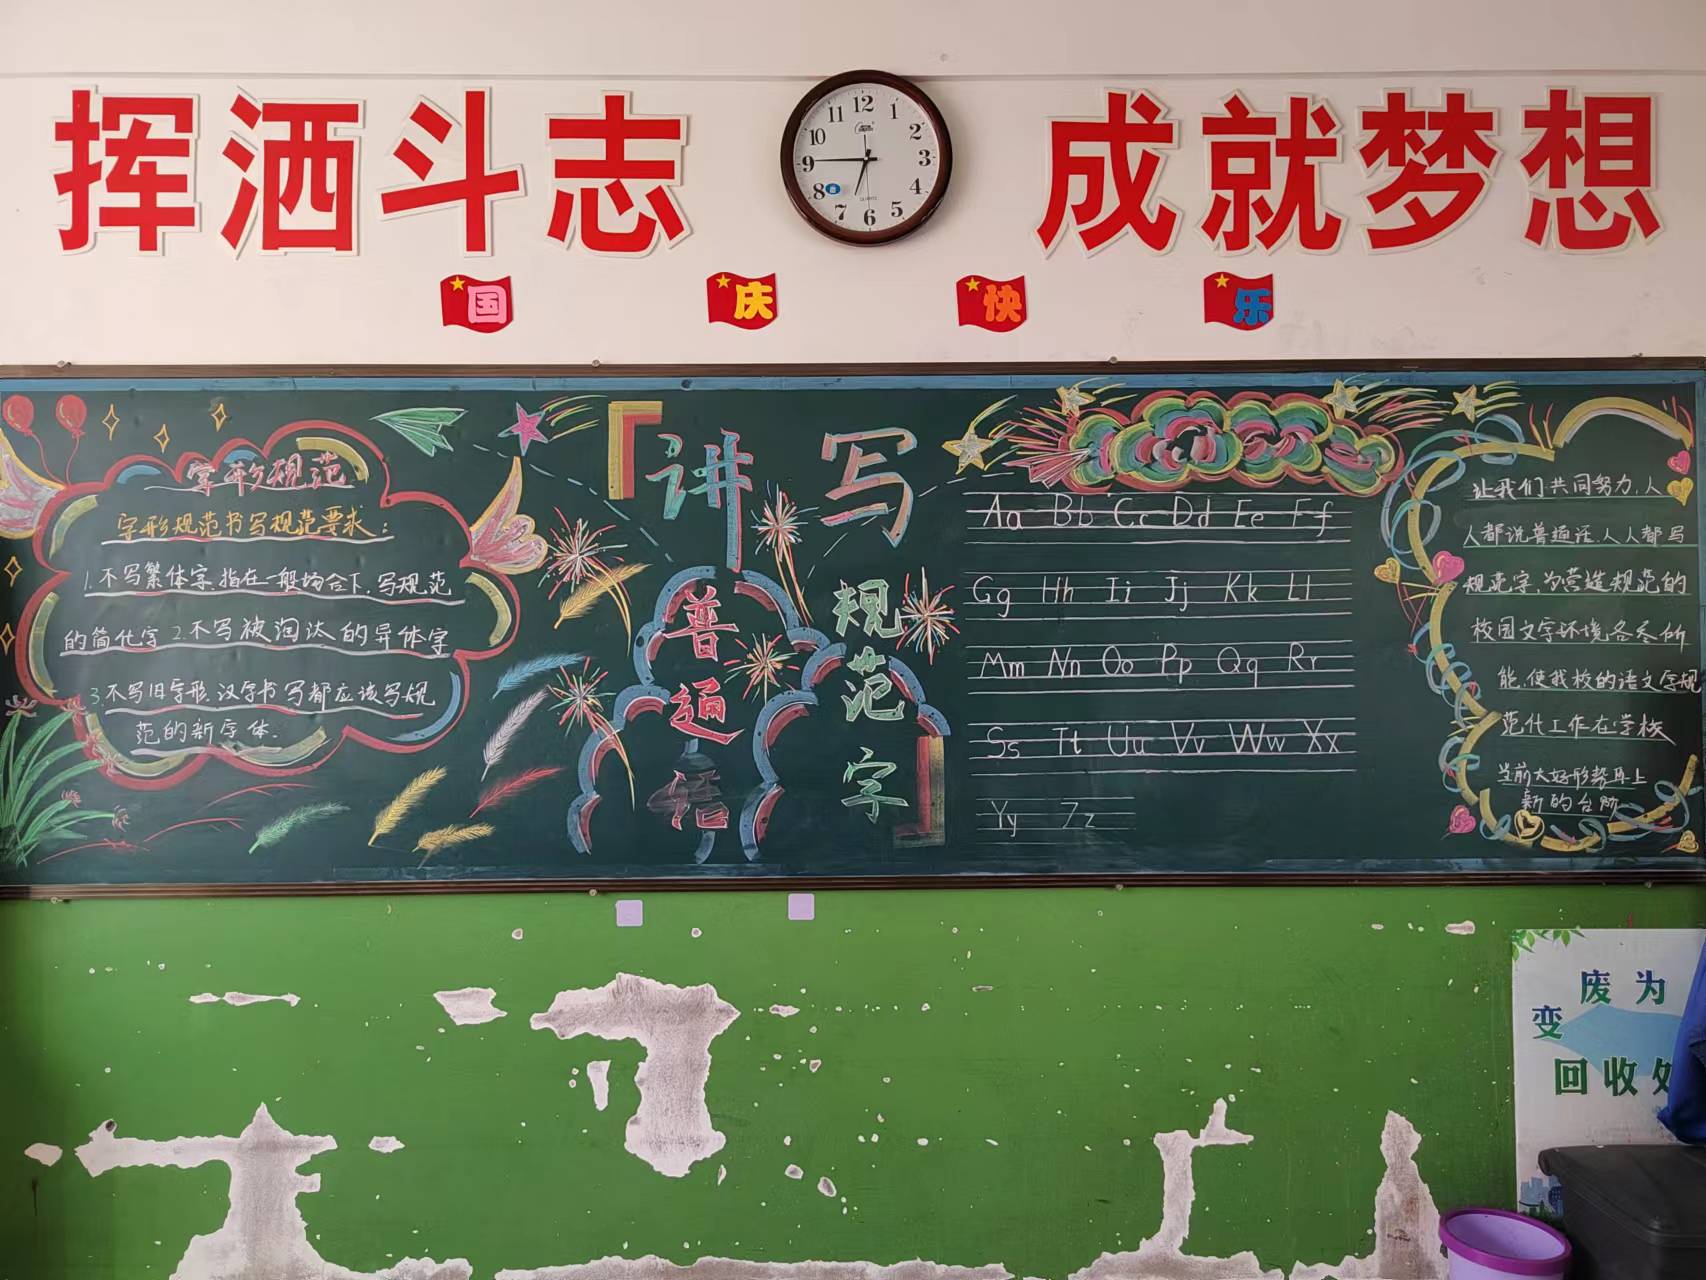 挥洒斗志
成就梦想
12
1
2
3
4
5
6
7
8
9
10
11
QUARTZ
国庆快乐
字形规范
字形规范书写规范要求:
1.不写繁体字,指在一般场合下,写规范
的简化字 2.不写被淘汰的异体字
3.不写旧字形,汉字书写都应该写规
范的新字体.
「讲
普通话
写
规范字」
Aa Bb Cc Dd Ee Ff
Gg Hh Ii Jj Kk Ll
Mm Nn Oo Pp Qq Rr
Ss Tt Uu Vv Ww Xx
Yy Zz
让我们共同努力,人
人都说普通话,人人都写
规范字,为营造规范的
校园文字环境各尽所
能,使我校的语文字规
范化工作在学校
当前大好形势再上
新的台阶
变废为
回收处